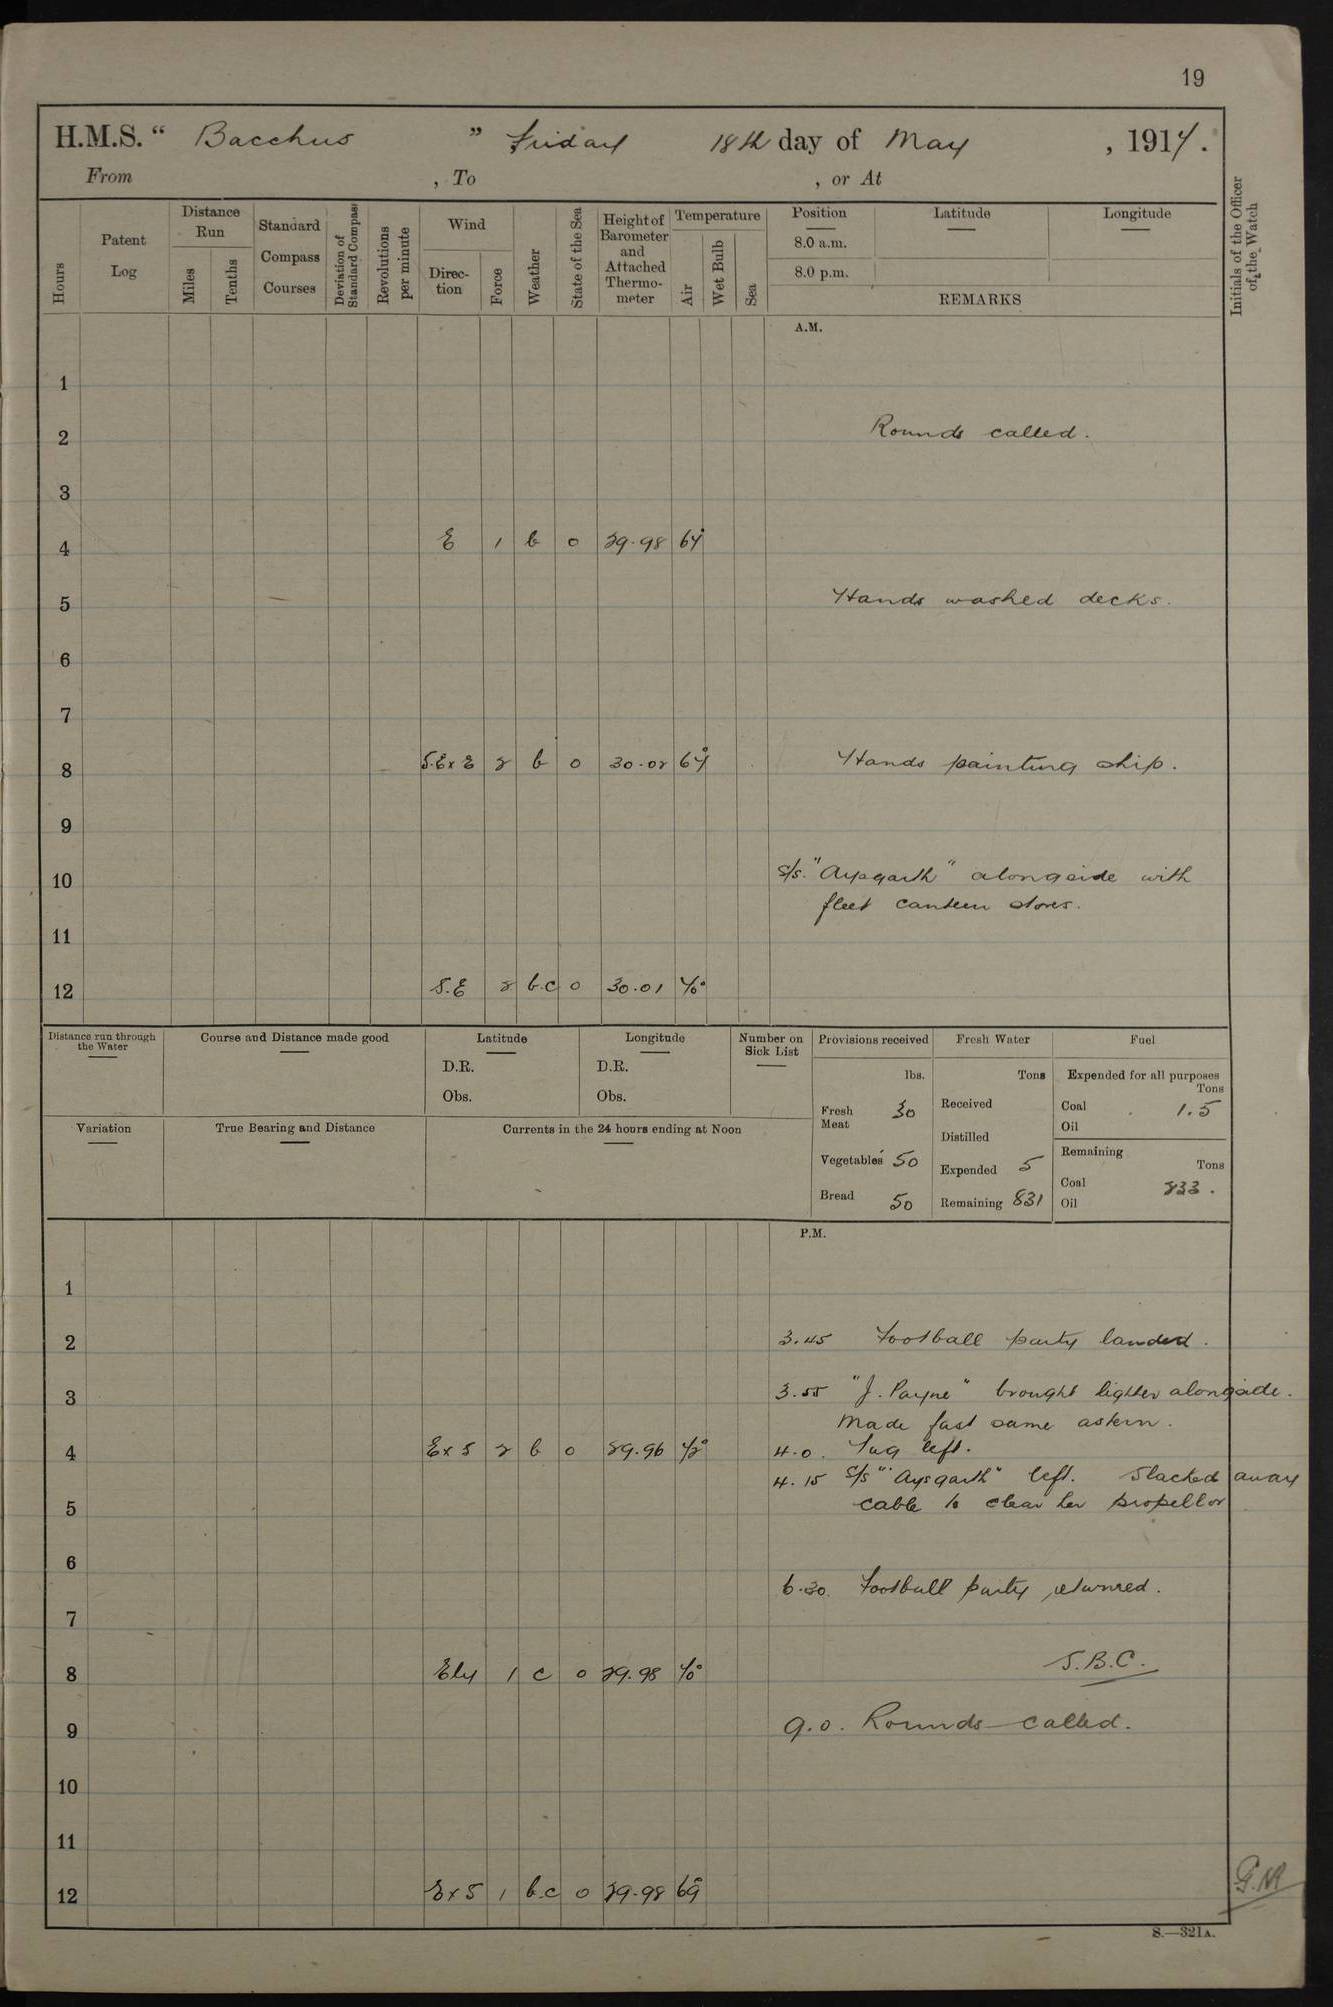 19
H.M.S. “ Bacchus ” Friday 18th day of May , 1917.
From , To , or At
Hours
Patent Log
Distance Run
Miles
Tenths
Standard Compass Courses
Deviation of Standard Compass
Revolutions per minute
Wind
Direc-tion
Force
Weather
State of the Sea
Height of Barometer and Attached Thermo-meter
Temperature
Air
Wet Bulb
Sea
Position
8.0 a.m.
8.0 p.m.
Latitude
Longitude
REMARKS
Initials of the Officer of the Watch
A.M.
1
2 Rounds called.
3
4 E 1 b 0 29.98 67°
5 Hands washed decks.
6
7
8 S.E x E 2 b 0 30.02 67° Hands painting ship.
9
10 S/s. "Aysgarth" alongside with
fleet canteen stores.
11
12 S.E 2 b.c 0 30.01 70°
Distance run through the Water
Course and Distance made good
Latitude
D.R.
Obs.
Longitude
D.R.
Obs.
Number on Sick List
Provisions received
lbs.
Fresh Meat 30
Vegetables 50
Bread 50
Fresh Water
Tons
Received
Distilled
Expended 5
Remaining 831
Fuel
Expended for all purposes
Tons
Coal 1.5
Oil
Remaining
Tons
Coal 833.
Oil
Variation
True Bearing and Distance
Currents in the 24 hours ending at Noon
P.M.
1
2 3.45 Football party landed.
3 3.55 "J. Payne" brought lighter alongside.
Made fast same astern.
4 E x S 2 b 0 29.96 72° 4.0. Tug left.
4.15 S/s "Aysgarth" left. Slacked away
5 cable to clear her propellor
6
6.30. Football party returned.
7
8 Ely 1 c 0 29.98 70° S.B.C.
9 9.0. Rounds called.
10
11
12 E x S 1 b.c 0 29.98 69°
S.—321A.